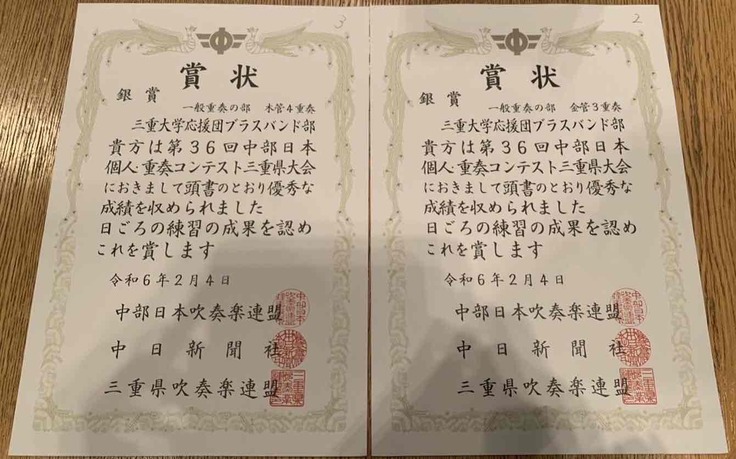 3
中
賞状
銀賞
一般重奏の部 木管4重奏
三重大学応援団ブラスバンド部
貴方は第36回中部日本
個人・重奏コンテスト三重県大会
におきまして頭書のとおり優秀な
成績を収められました
日ごろの練習の成果を認め
これを賞します
令和6年2月4日
中部日本吹奏楽連盟
中日新聞社
三重県吹奏楽連盟
2
中
賞状
銀賞
一般重奏の部 金管3重奏
三重大学応援団ブラスバンド部
貴方は第36回中部日本
個人・重奏コンテスト三重県大会
におきまして頭書のとおり優秀な
成績を収められました
日ごろの練習の成果を認め
これを賞します
令和6年2月4日
中部日本吹奏楽連盟
中日新聞社
三重県吹奏楽連盟